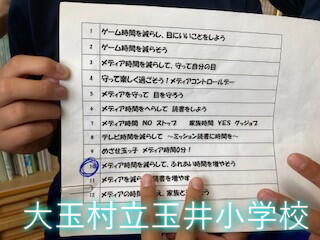 1 ゲーム時間を減らし、目にいいことをしよう
2 ゲーム時間を減らそう
3 メディア時間を減らして、守って自分の目
4 守って楽しく過ごそう！メディアコントロールデー
5 メディアを守って 目を守ろう
6 メディア時間をへらして 読書をしよう
7 メディア時間 NO ストップ 家族時間 YES グッジョブ
8 テレビ時間を減らして ～ミッション読書に時間を～
9 めざせ玉っ子 メディア時間0分！
10 メディア時間を減らして、ふれあい時間を増やそう
11 メディアを減らし 読書を増やす
12 メディアの時間 え、家族と
大玉村立玉井小学校